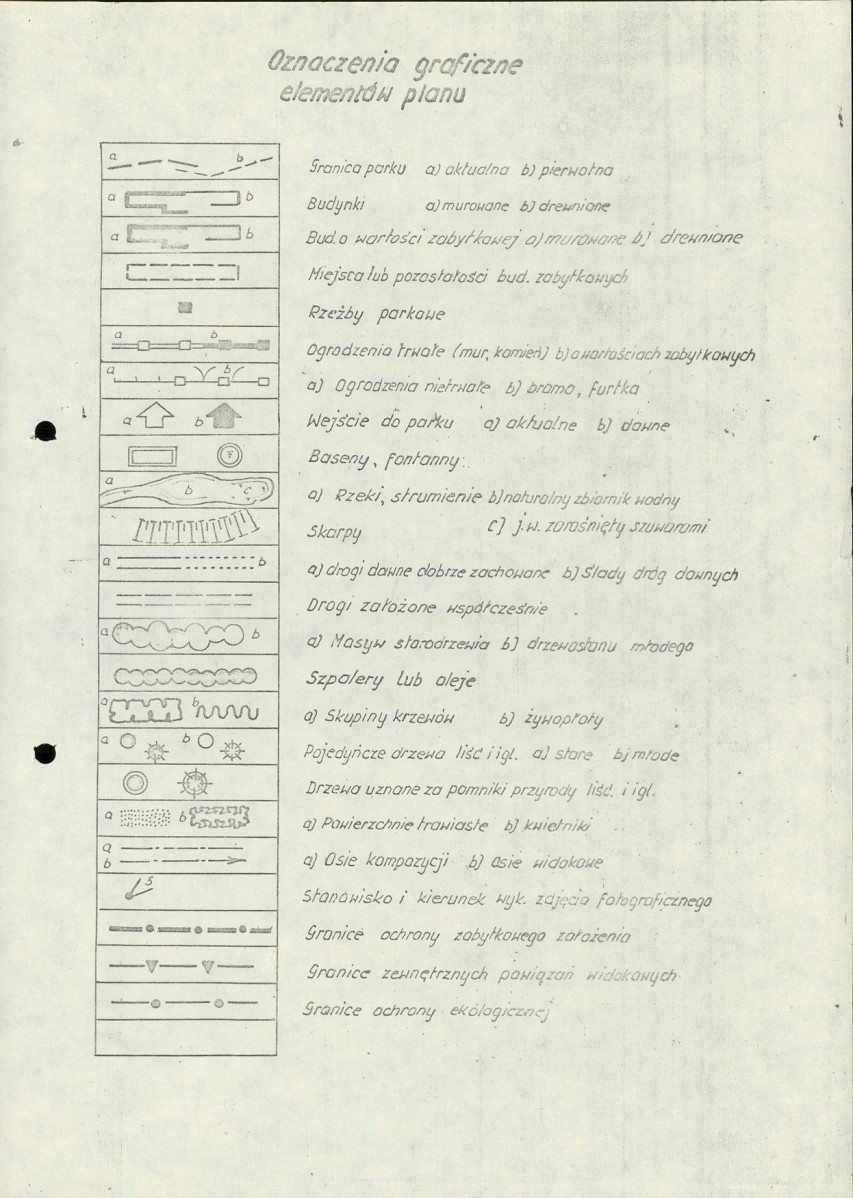 Oznaczenia graficzne
elementów planu
a b Granica parku a) aktualna b) pierwotna
a b Budynki a) murowane b) drewniane
a b Bud. o wartości zabytkowej a) murowane b) drewniane
Miejsca lub pozostałości bud. zabytkowych
Rzeźby parkowe
a b Ogrodzenia trwałe (mur, kamień) b) o wartościach zabytkowych
a b a) Ogrodzenia nietrwałe b) brama, furtka
a b Wejście do parku a) aktualne b) dawne
Baseny, fontanny
a b c a) Rzeki, strumienie b) naturalny zbiornik wodny
Skarpy c) j.w. zarośnięty szuwarami
a b a) drogi dawne dobrze zachowane b) Ślady dróg dawnych
Drogi założone współcześnie
a b a) Masyw starodrzewia b) drzewostanu młodego
Szpalery lub aleje
a b a) Skupiny krzewów b) żywopłoty
a b Pojedyńcze drzewa liść i igl. a) stare b) młode
Drzewa uznane za pomniki przyrody liść. i igl.
a b a) Powierzchnie trawiaste b) kwietniki
a b a) Osie kompozycji b) Osie widokowe
5 Stanowisko i kierunek wyk. zdjęcia fotograficznego
Granice ochrony zabytkowego założenia
Granice zewnętrznych powiązań widokowych
Granice ochrony ekologicznej